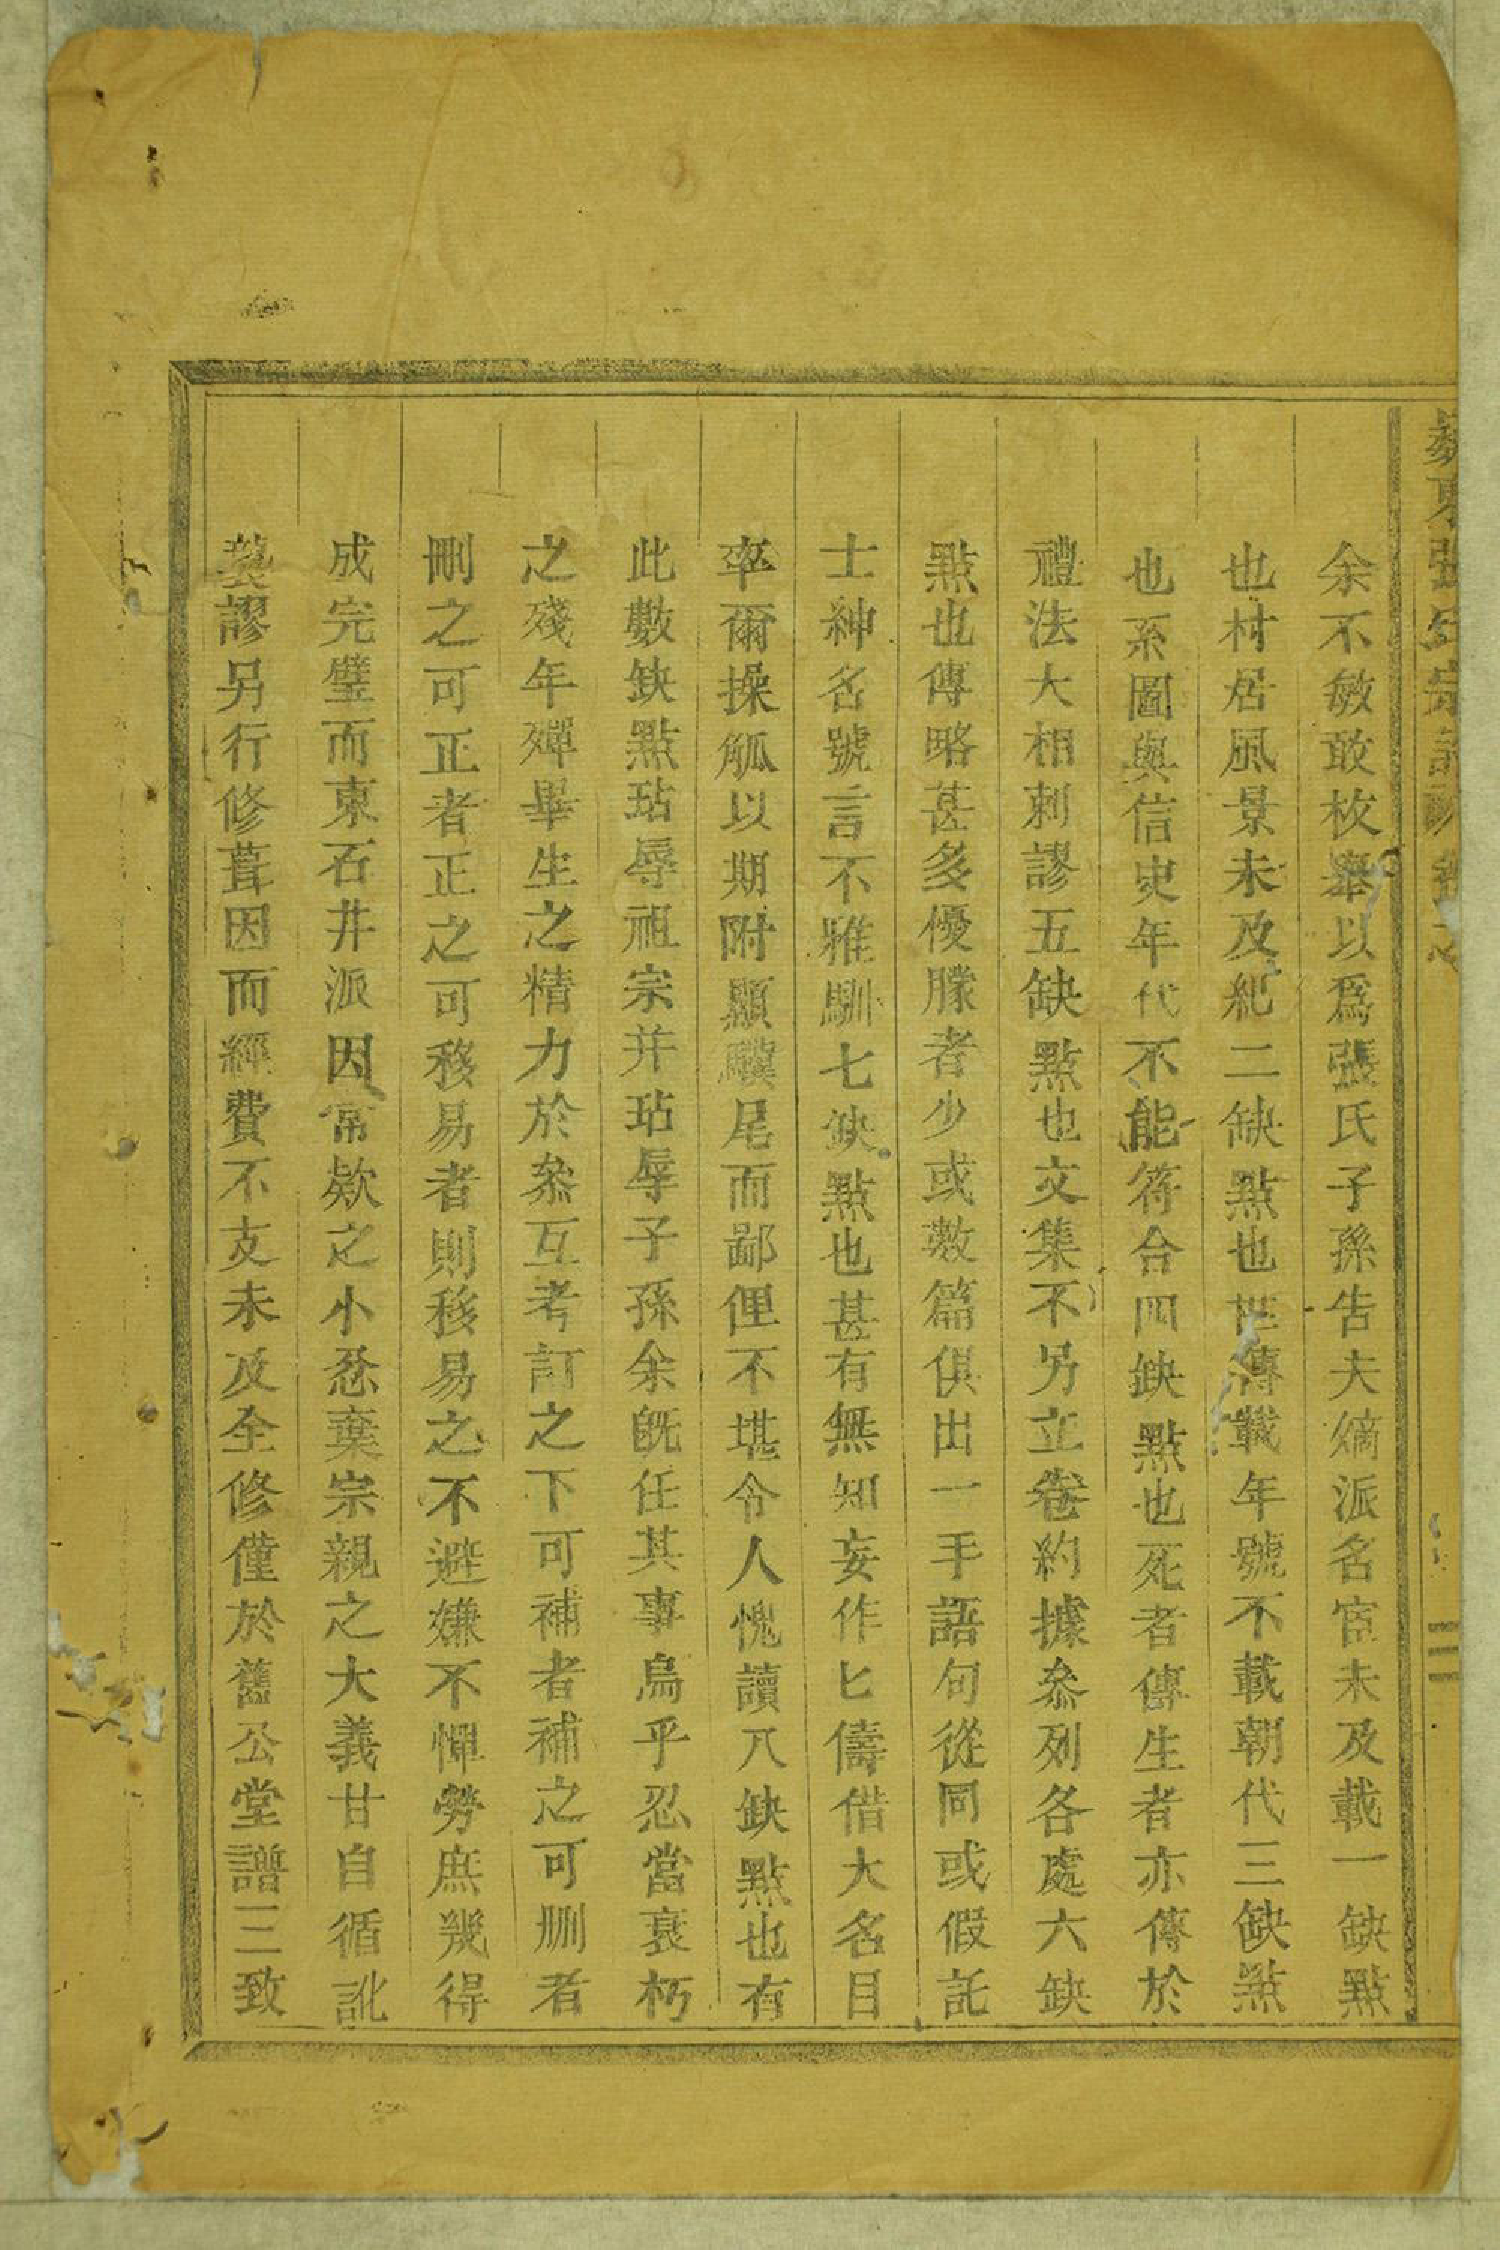 余不敏敢枚舉以爲張氏子孫告夫嫡派名宦未及載一缺點
也村居風景未及紀二缺點也世傳載年號不載朝代三缺點
也系圖與信史年代不能符合四缺點也死者傳生者亦傳於
禮法大相刺謬五缺點也文集不另立卷約據叅列各處六缺
點也傳略甚多優朦者少或数篇俱出一手語句從同或假託
士紳名號言不雅馴七缺點也甚有無知妄作匕儔借大名目
卒爾操觚以期附顯驥尾而鄙俚不堪令人愧讀八缺點也有
此數缺點玷辱祖宗并玷辱子孫余旣任其事烏乎忍當衰朽
之殘年殫畢生之精力於叅互考訂之下可補者補之可刪者
刪之可正者正之可移易者則移易之不避嫌不憚勞庶幾得
成完璧而東石井派因常欵之小忿棄宗親之大義甘自循訛
襲謬另行修葺因而經費不支未及全修僅於舊公堂譜三致
東張氏宗譜
三